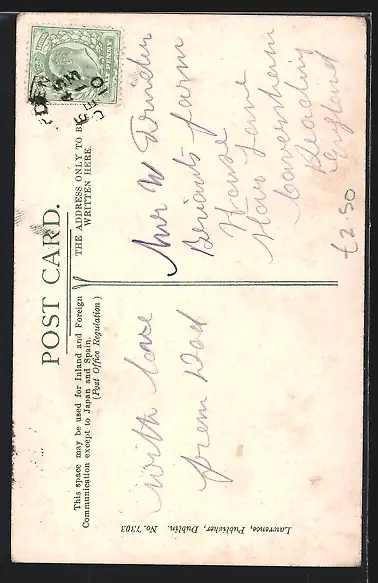 POST CARD.
This space may be used for Inland and Foreign
Communication except to Japan and Spain.
(Post Office Regulation)
THE ADDRESS ONLY TO BE
WRITTEN HERE.
HALFPENNY
with love
from Dad
Mr W
Bryants farm
House
Lane
Caversham
Reading
England
£2.50
Lawrence, Publisher, Dublin. No. 7303